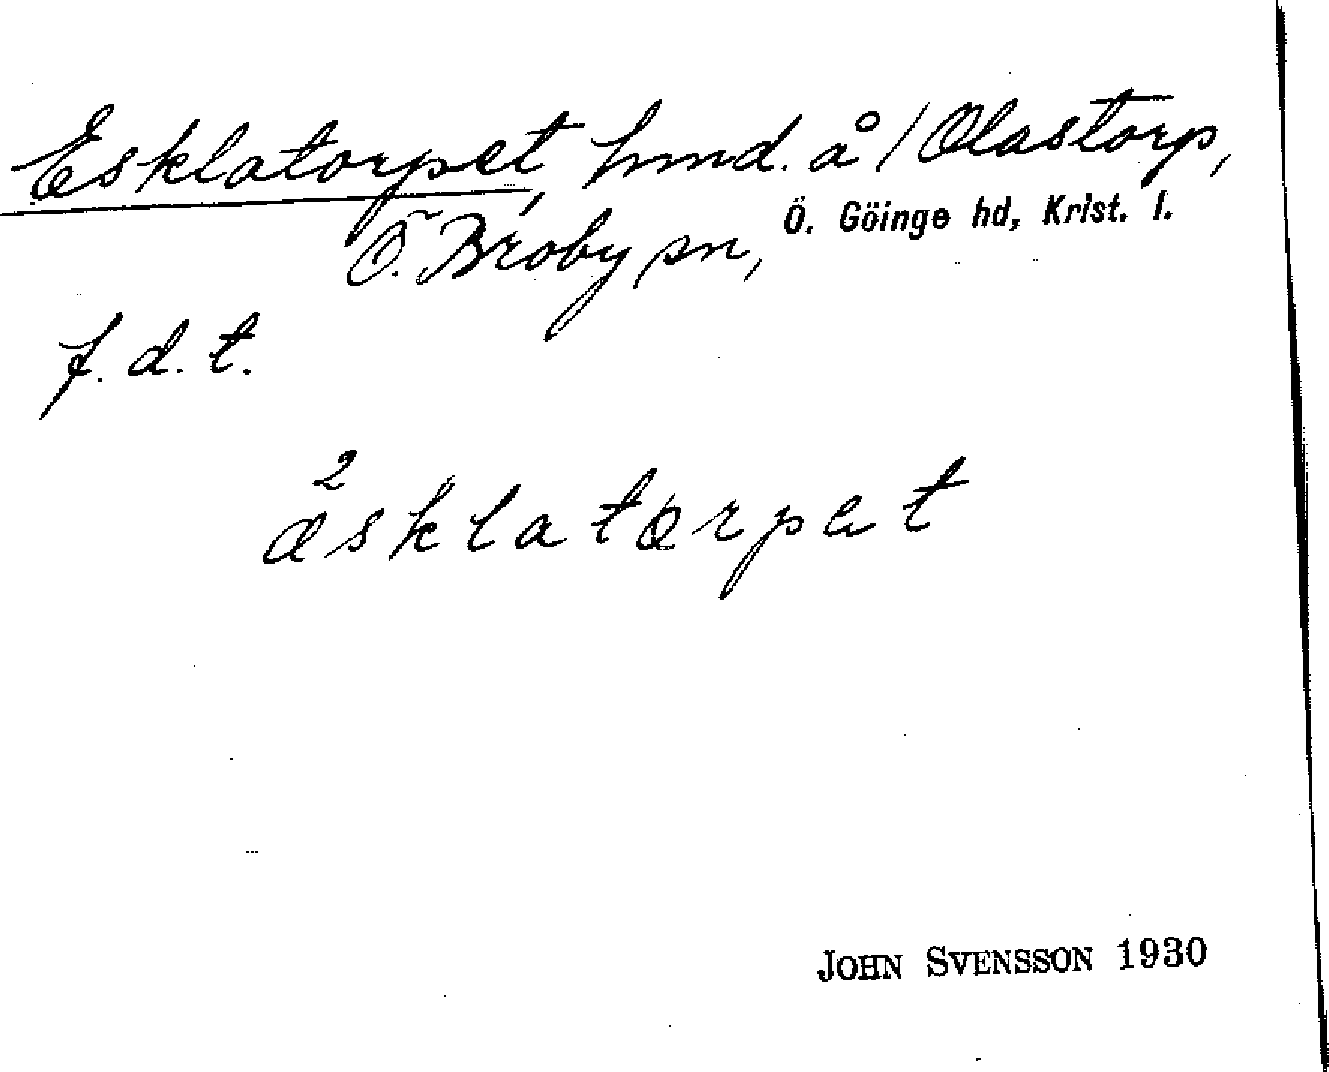 Esklatorpet, hmd. å / Olastorp,
Ö. Broby sn, Ö. Göinge hd, Krist. l.
f. d. t.
²æsklatɷrpət
JOHN SVENSSON 1930